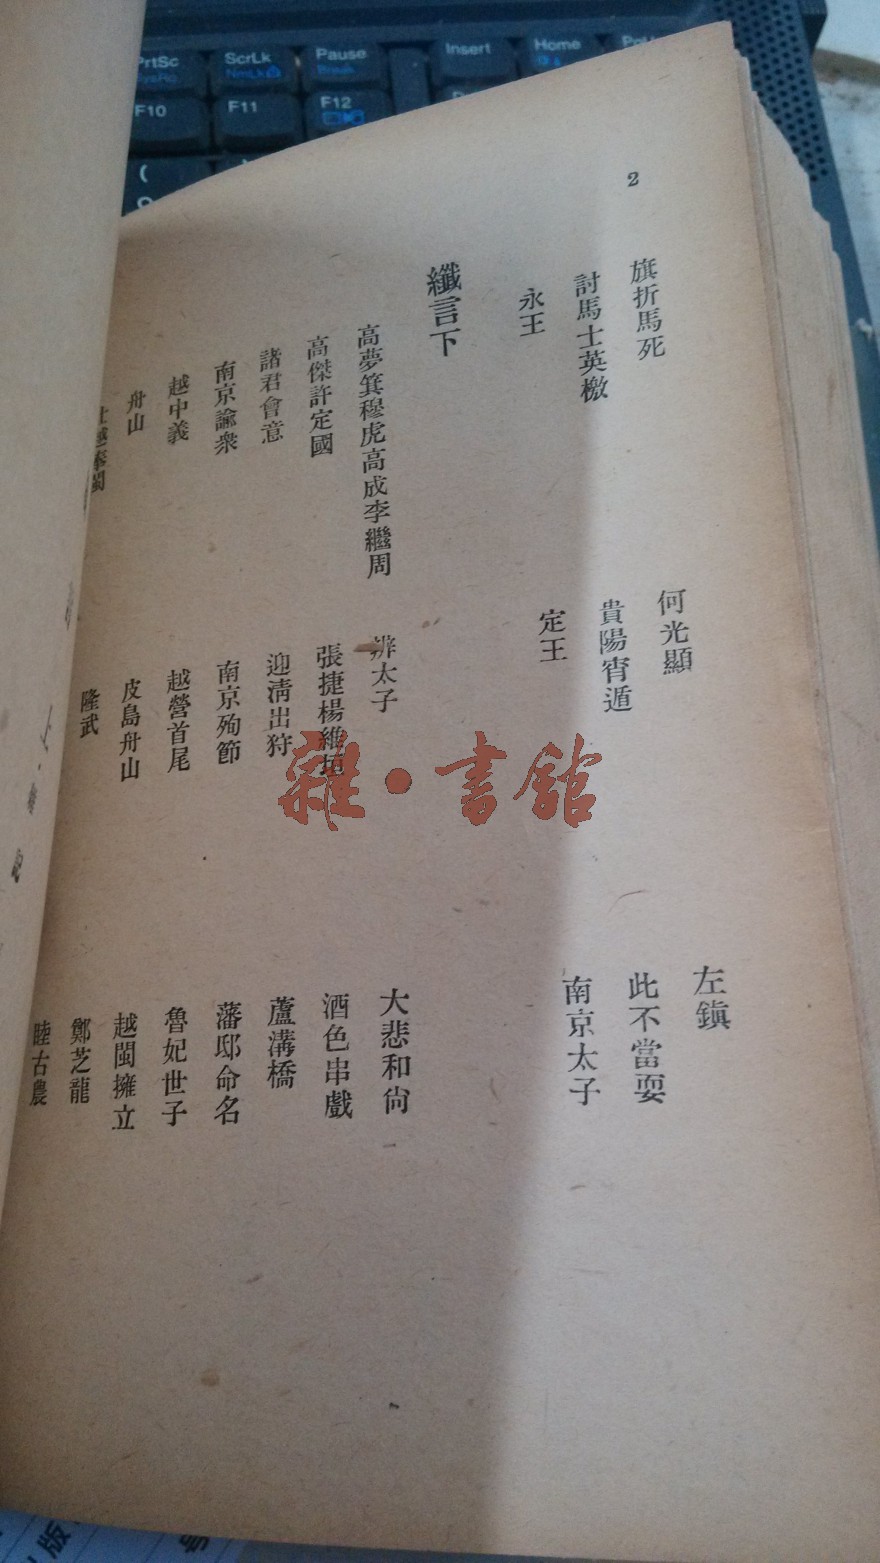 PrtSc
SysRq
ScrLk
NmLk
Pause
Break
Insert
Home
F10
F11
F12
(
2
旗折馬死 何光顯 左鎮
討馬士英檄 貴陽宵遁 此不當耍
永王 定王 南京太子
纖言下
高夢箕穆虎高成李繼周 辨太子 大悲和尙
高傑許定國 張捷楊維垣 酒色串戲
諸君會意 迎淸出狩 蘆溝橋
南京諭衆 南京殉節 藩邸命名
越中義 越營首尾 魯妃世子
舟山 皮島舟山 越閩擁立
隆武 鄭芝龍
睦古農
雜·書館
版